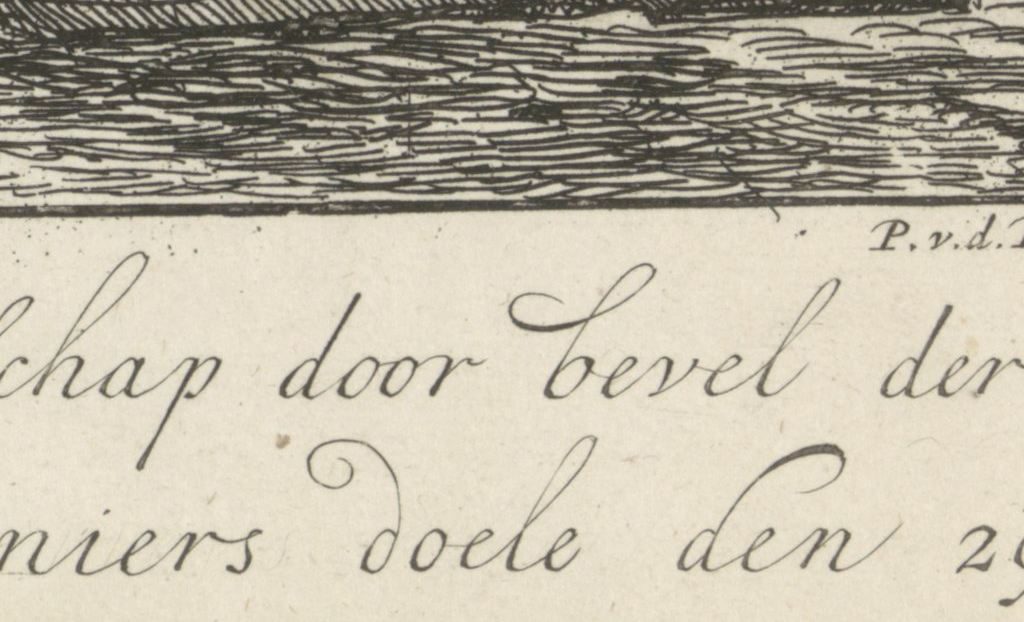 P. v. d.
chap door bevel der
niers doele den 29